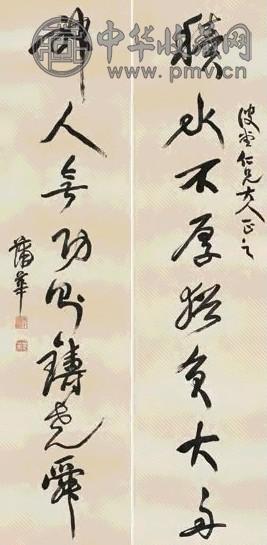 中华收藏网
www.pmv.cn
積水不厚猶負大舟
仁兄大人正之
神人無功鑄堯舜
蒲華